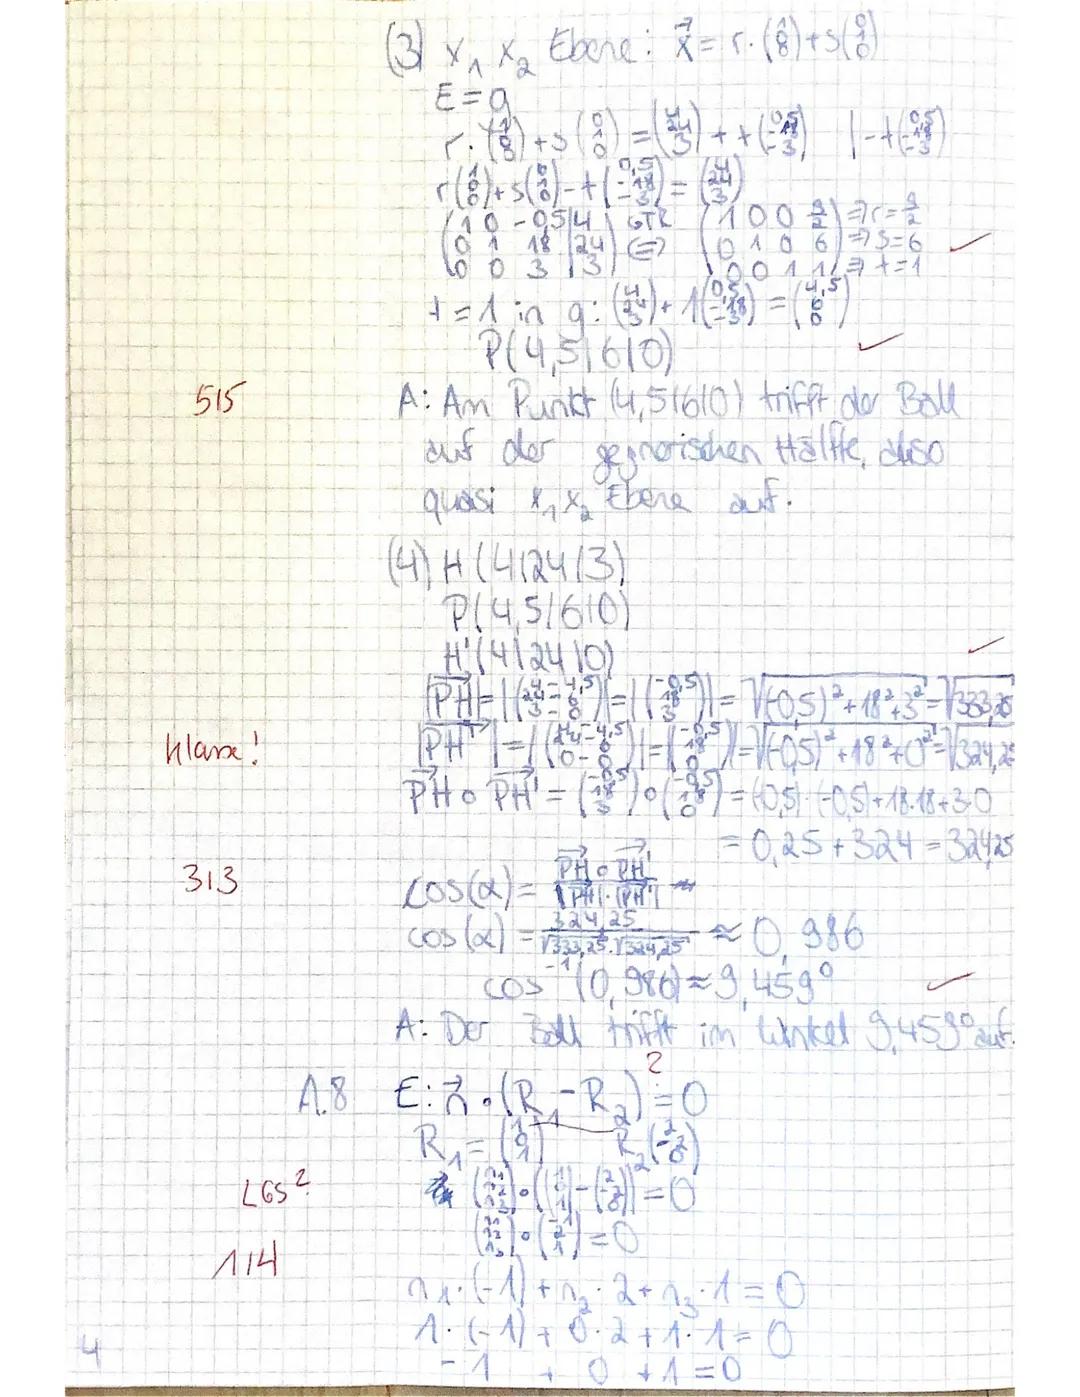 (3) x₁ x₂ Ebene: x⃗ = r·(1 0 0) + s(0 1 0)
E = g
r·(1 0 0) + s(0 1 0) = (4 24 3) + t(0,5 -18 -3) | -t(0,5 -18 -3)
r(1 0 0) + s(0 1 0) - t(0,5 -18 -3) = (4 24 3)
(1 0 -0,5 | 4) GTR (1 0 0 9/2) ⇒ r = 9/2
(0 1 18 | 24) ⇔ (0 1 0 6) ⇒ s = 6 ✓
(0 0 3 | 3) (0 0 1 1) ⇒ t = 1
t = 1 in g: (4 24 3) + 1(0,5 -18 -3) = (4,5 6 0)
P(4,5|6|0) ✓
5/5 A: Am Punkt (4,5|6|0) trifft der Ball
auf der gegnerischen Hälfte, also
quasi x₁ x₂ Ebene auf.
(4) H(4|24|3)
P(4,5|6|0)
H'(4|24|0) ✓
|PH| = |(4-4,5 24-6 3-0)| = |(-0,5 18 3)| = √(-0,5)²+18²+3² = √333,25
Klare! |PH'| = |(4-4,5 24-6 0-0)| = |(-0,5 18 0)| = √(-0,5)²+18²+0² = √324,25
PH ∘ PH' = (-0,5 18 3) ∘ (-0,5 18 0) = (-0,5)·(-0,5)+18·18+3·0
= 0,25 + 324 = 324,25
3/3 cos(α) = PH ∘ PH' / |PH|·|PH'|
cos(α) = 324,25 / √333,25·√324,25 ≈ 0,986
cos⁻¹(0,986) ≈ 9,459° ✓
A: Der Ball trifft im Winkel 9,459° auf.
A.8 E: n⃗ ∘ (R₁ - R₂) = 0 ?
R₁ = (1 0 1) R₂(2 -2 0)
LGS? (n₁ n₂ n₃) ∘ ((1 0 1) - (2 -2 0)) = 0
(n₁ n₂ n₃) ∘ (-1 2 1) = 0
1/4
n₁·(-1) + n₂·2 + n₃·1 = 0
1·(-1) + 0·2 + 1·1 = 0
-1 + 0 + 1 = 0
4